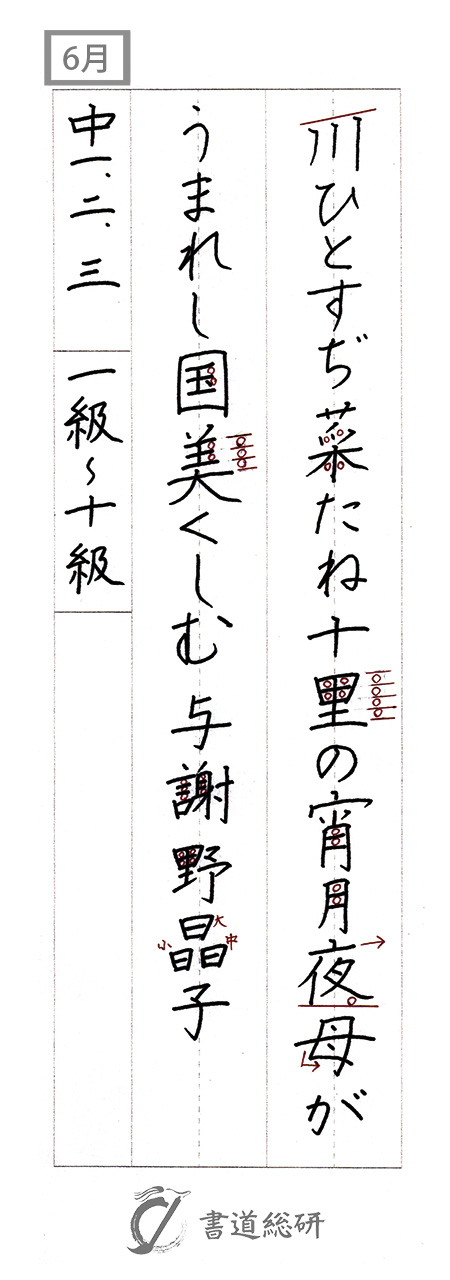 6月
川ひとすぢ菜たね十里の宵月夜母が
うまれし国美くしむ 与謝野晶子
中一、二、三 一級~十級
大
小 中
書道総研